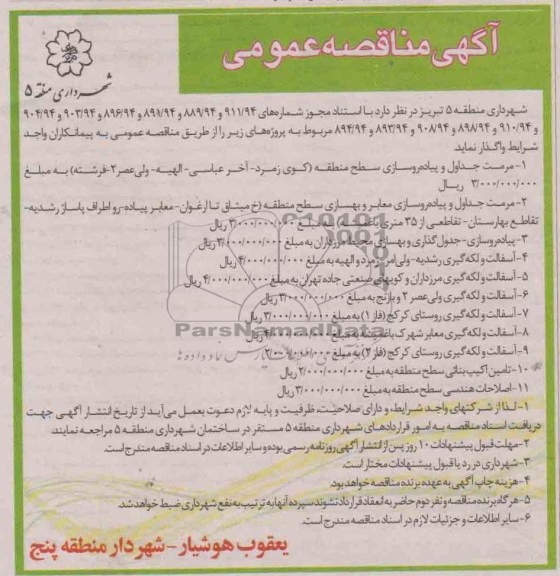 آگهی مناقصه عمومی
شهرداری منطقه ۵
شهرداری منطقه ۵ تبریز در نظر دارد با استناد مجوز شماره‌های ۹۱۱/۹۴ و ۸۸۹/۹۴ و ۸۹۱/۹۴ و ۸۹۶/۹۴ و ۹۰۳/۹۴ و ۹۰۴/۹۴
و ۹۱۰/۹۴ و ۸۹۸/۹۴ و ۹۰۸/۹۴ و ۸۹۳/۹۴ و ۸۹۴/۹۴ مربوط به پروژه‌های زیر را از طریق مناقصه عمومی به پیمانکاران واجد
شرایط واگذار نماید.
۱- مرمت جداول و پیاده‌روسازی سطح منطقه (کوی زمرد- آخر عباسی- الهیه- ولی‌عصر۲-فرشته) به مبلغ
۳/۰۰۰/۰۰۰/۰۰۰ ریال
۲- مرمت جداول و پیاده‌روسازی معابر و بهسازی سطح منطقه (خ میثاق تا ارغوان- معابر پیاده-رو اطراف پاساژ رشدیه-
تقاطع بهارستان- تقاطعی از ۳۵ متری باغمیشه) به مبلغ ۳/۰۰۰/۰۰۰/۰۰۰ ریال
۳- پیاده‌روسازی- جدول‌گذاری و بهسازی محیط مرزداران به مبلغ ۳/۰۰۰/۰۰۰/۰۰۰ ریال
۴- آسفالت و لکه‌گیری رشدیه- ولی‌امر- زمرد و الهیه به مبلغ ۴/۰۰۰/۰۰۰/۰۰۰ ریال
۵- آسفالت و لکه‌گیری مرزداران و کویهای صنعتی جاده تهران به مبلغ ۴/۰۰۰/۰۰۰/۰۰۰ ریال
۶- آسفالت و لکه‌گیری ولی‌عصر ۲ و بارنج به مبلغ ۳/۰۰۰/۰۰۰/۰۰۰ ریال
۷- آسفالت و لکه‌گیری روستای کرکج (فاز ۱) به مبلغ ۳/۰۰۰/۰۰۰/۰۰۰ ریال
۸- آسفالت و لکه‌گیری معابر شهرک باغمیشه به مبلغ ۴/۰۰۰/۰۰۰/۰۰۰ ریال
۹- آسفالت و لکه‌گیری روستای کرکج (فاز ۲) به مبلغ ریال
۱۰- تامین اکیپ بنائی سطح منطقه به مبلغ ۲/۰۰۰/۰۰۰/۰۰۰ ریال
۱۱- اصلاحات هندسی سطح منطقه به مبلغ ۳/۰۰۰/۰۰۰/۰۰۰ ریال
۱- لذا از شرکتهای واجد شرایط، و دارای صلاحیت، ظرفیت و پایه لازم دعوت بعمل می‌آید از تاریخ انتشار آگهی جهت
دریافت اسناد مناقصه به امور قراردادهای شهرداری منطقه ۵ مستقر در ساختمان شهرداری منطقه ۵ مراجعه نمایند.
۲- مهلت قبول پیشنهادات ۱۰ روز پس از انتشار آگهی روزنامه رسمی بوده و سایر اطلاعات در اسناد مناقصه مندرج است.
۳- شهرداری در رد یا قبول پیشنهادات مختار است.
۴- هزینه چاپ آگهی به عهده برنده مناقصه خواهد بود.
۵- هرگاه برنده مناقصه و نفر دوم حاضر به انعقاد قرارداد نشوند سپرده آنها به ترتیب به نفع شهرداری ضبط خواهد شد.
۶- سایر اطلاعات و جزئیات لازم در اسناد مناقصه مندرج است.
یعقوب هوشیار - شهردار منطقه پنج
ParsNamadData